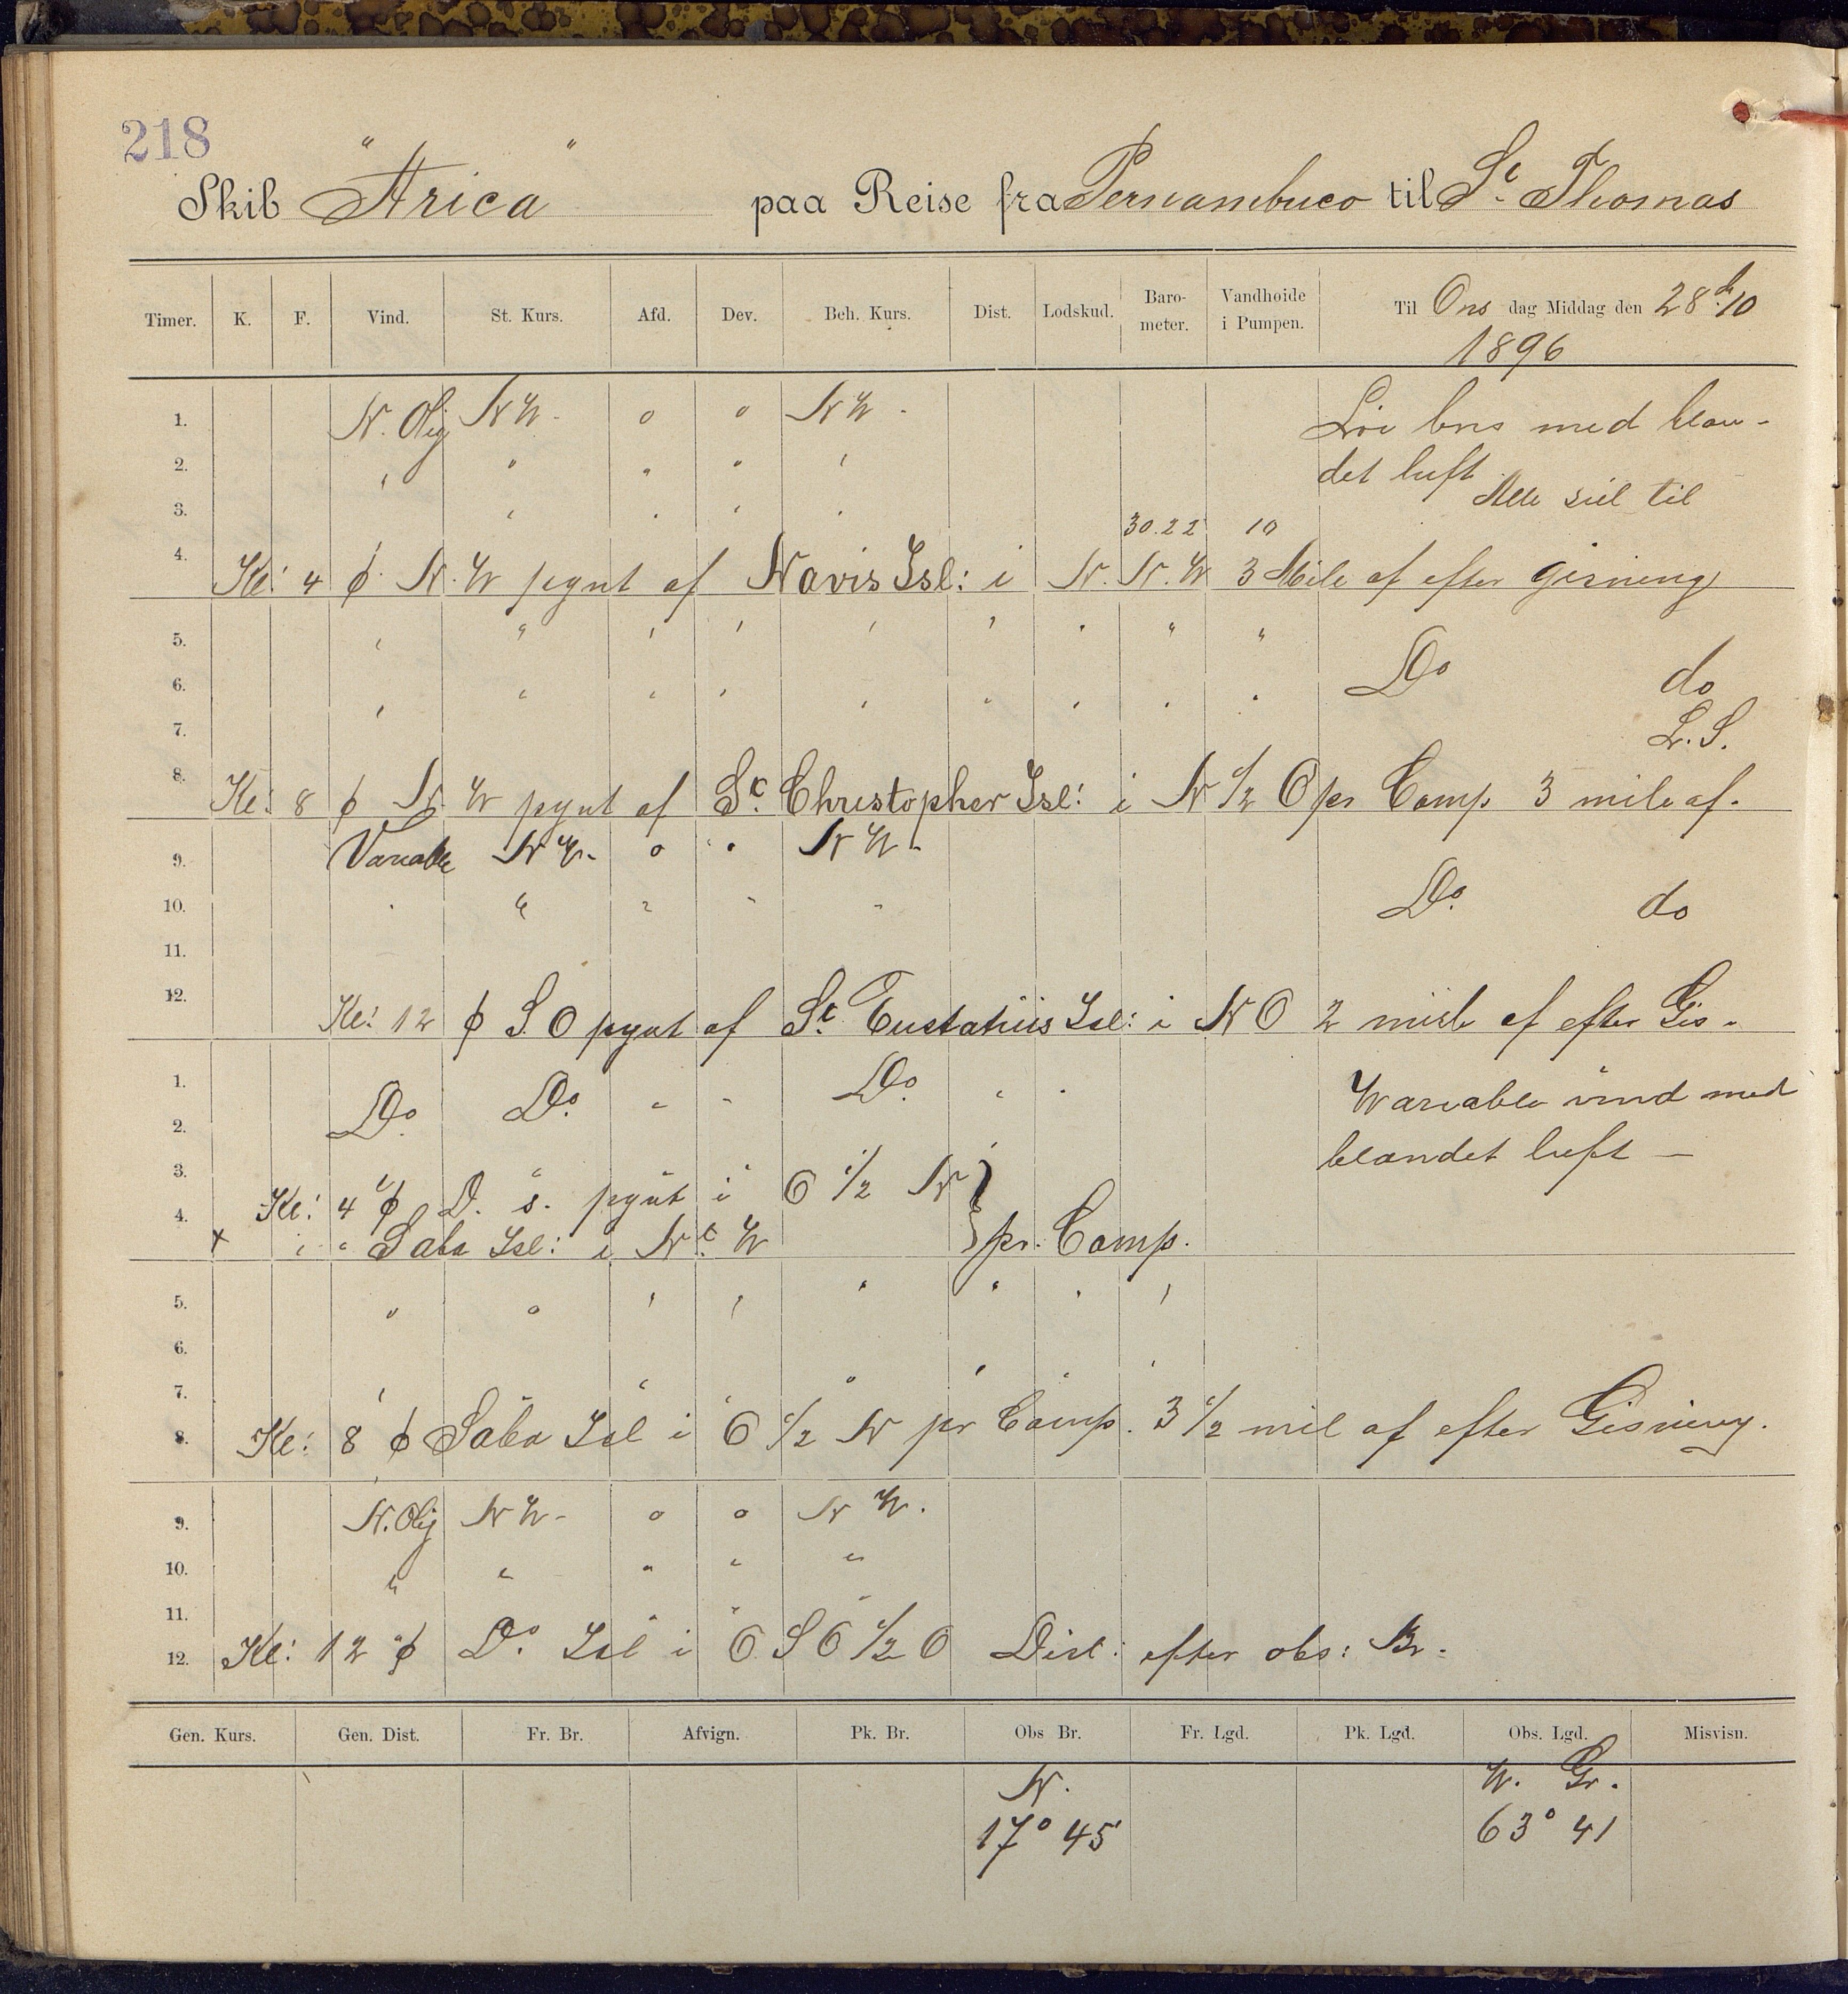 218
Skib "Arica" paa Reise fra Pernambuco til St. Thomas
Timer. K. F. Vind. St. Kurs. Afd. Dev. Beh. Kurs. Dist. Lodskud. Baro-meter. Vandhøide i Pumpen. Til Ons dag Middag den 28de/10
1896
1. N. Olig NW. o o NW. Lòi bris med blan-
2. " " " " " det luft. Alle seil til
3. " " " " 30.22 10
4. Kl: 4 ɸ N.W pynt af Navis Isl: i N.N.W 3 Mile af efter gisning
5. " " " " " " " " " Do do
6. " " " " " " " " "
7. L.S.
8. Kl: 8 ɸ N.W pynt af St. Christopher Isl: i N 1/2 O pr Comp 3 mile af.
9. Variable NW. o " NW.
10. " " " " " Do. do
11.
12. Kl: 12 ɸ S.O pynt af St. Eustatiüs Isl: i NO 2 mile af efter Gis.
1. Do. Do. " " Do. " " Wariable vind med
2. blandet luft —
3.
4. Kl: 4 ɸ D. s. pynt i O 1/2 N }
x " " Saba Isl: i Nt. W } pr. Comp.
5. " " " " " " " "
6.
7. " " " " " " " "
8. Kl: 8 ɸ Saba Isl i O 1/2 N pr Comp. 3 1/2 mil af efter Gisning.
9. N. Olig NW. o o NW.
10. " " " " "
11. " " "
12. Kl: 12 ɸ Do. Isl i O S O 1/2 O Dist: efter obs: Br.
Gen. Kurs. Gen. Dist. Fr. Br. Afvign. Pk. Br. Obs Br. Fr. Lgd. Pk. Lgd. Obs. Lgd. Misvisn.
N. W. Gr.
17° 45' 63° 41